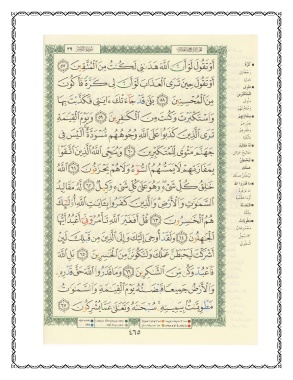 أَوْ تَقُولَ لَوْ أَنَّ اللَّهَ هَدَىٰنِي لَكُنتُ مِنَ الْمُتَّقِينَ ٥٧
أَوْ تَقُولَ حِينَ تَرَى الْعَذَابَ لَوْ أَنَّ لِي كَرَّةً فَأَكُونَ
مِنَ الْمُحْسِنِينَ ٥٨ بَلَىٰ قَدْ جَاءَتْكَ ءَايَٰتِي فَكَذَّبْتَ بِهَا
وَاسْتَكْبَرْتَ وَكُنتَ مِنَ الْكَٰفِرِينَ ٥٩ وَيَوْمَ الْقِيَٰمَةِ
تَرَى الَّذِينَ كَذَبُوا عَلَى اللَّهِ وُجُوهُهُم مُّسْوَدَّةٌ أَلَيْسَ فِي
جَهَنَّمَ مَثْوًى لِّلْمُتَكَبِّرِينَ ٦٠ وَيُنَجِّي اللَّهُ الَّذِينَ اتَّقَوْا
بِمَفَازَتِهِمْ لَا يَمَسُّهُمُ السُّوءُ وَلَا هُمْ يَحْزَنُونَ ٦١ اللَّهُ
خَٰلِقُ كُلِّ شَيْءٍ وَهُوَ عَلَىٰ كُلِّ شَيْءٍ وَكِيلٌ ٦٢ لَّهُ مَقَالِيدُ
السَّمَٰوَٰتِ وَالْأَرْضِ وَالَّذِينَ كَفَرُوا بِـَٔايَٰتِ اللَّهِ أُولَٰئِكَ
هُمُ الْخَٰسِرُونَ ٦٣ قُلْ أَفَغَيْرَ اللَّهِ تَأْمُرُونِّي أَعْبُدُ أَيُّهَا
الْجَٰهِلُونَ ٦٤ وَلَقَدْ أُوحِيَ إِلَيْكَ وَإِلَى الَّذِينَ مِن قَبْلِكَ لَئِنْ
أَشْرَكْتَ لَيَحْبَطَنَّ عَمَلُكَ وَلَتَكُونَنَّ مِنَ الْخَٰسِرِينَ ٦٥ بَلِ اللَّهَ
فَاعْبُدْ وَكُن مِّنَ الشَّٰكِرِينَ ٦٦ وَمَا قَدَرُوا اللَّهَ حَقَّ قَدْرِهِ
وَالْأَرْضُ جَمِيعًا قَبْضَتُهُ يَوْمَ الْقِيَٰمَةِ وَالسَّمَٰوَٰتُ
مَطْوِيَّٰتٌ بِيَمِينِهِ سُبْحَٰنَهُ وَتَعَٰلَىٰ عَمَّا يُشْرِكُونَ ٦٧
٤٦٥